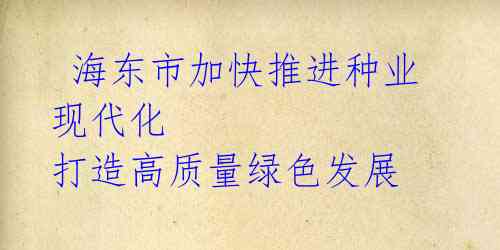 海东市加快推进种业
现代化
打造高质量绿色发展